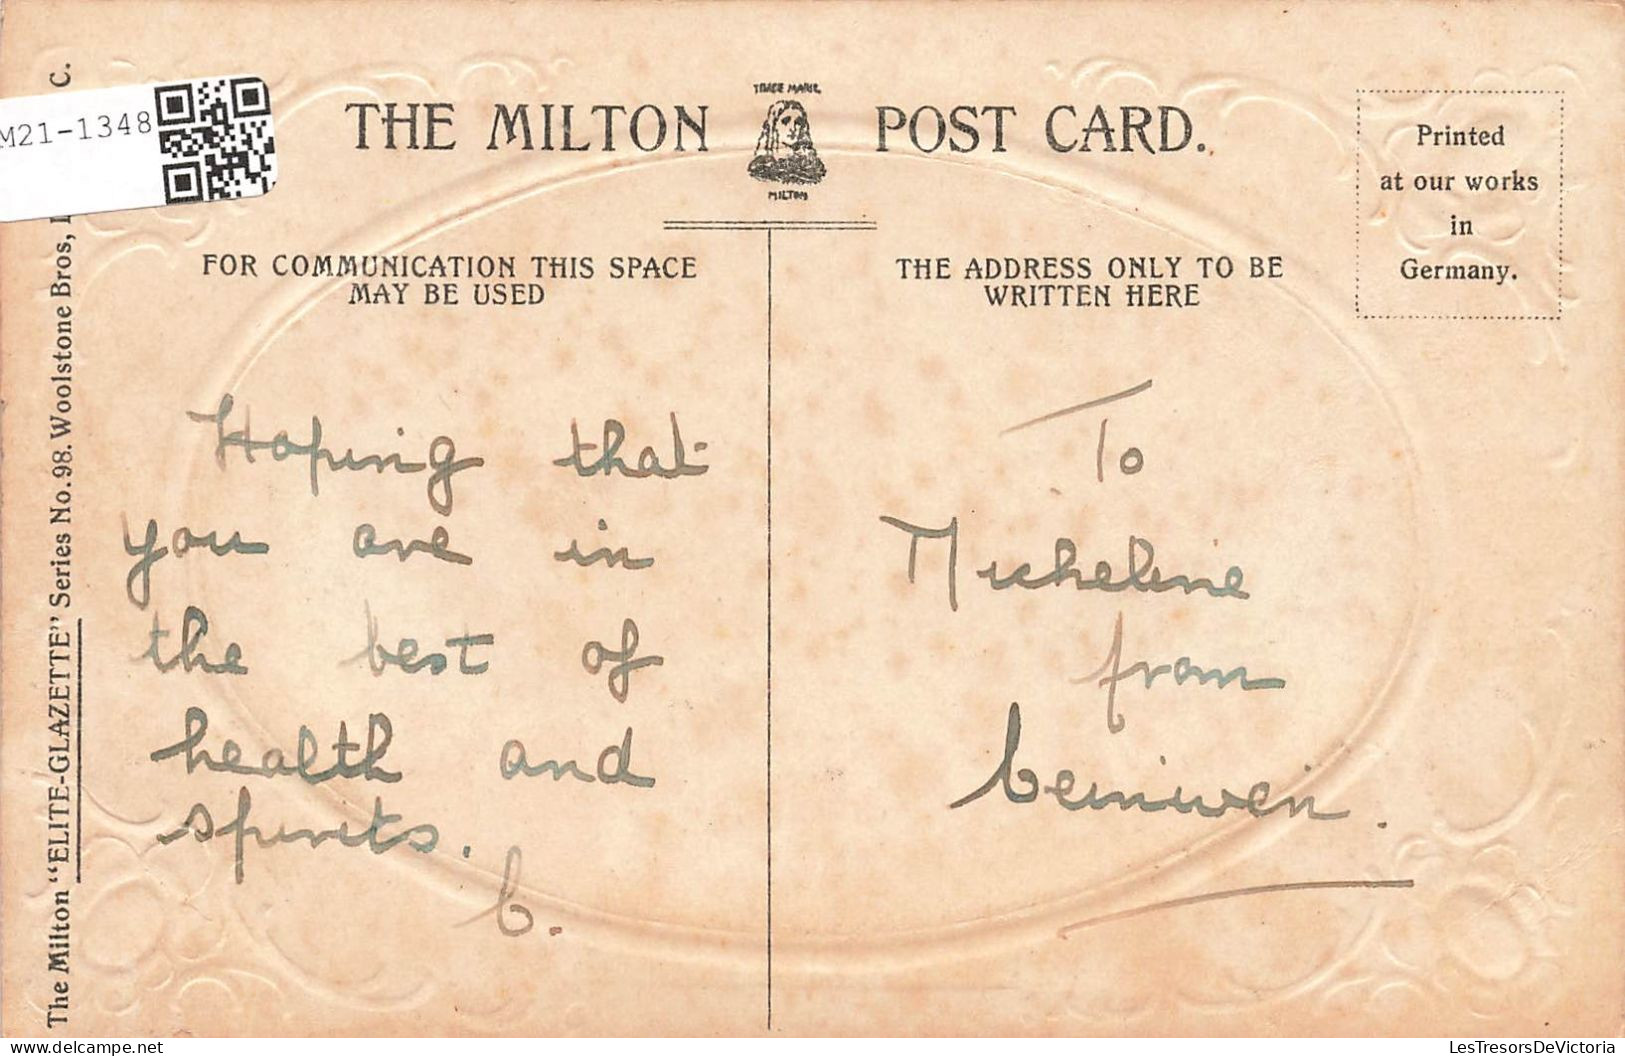 M21-1348
THE MILTON POST CARD.
TRADE MARK
MILTON
Printed
at our works
in
Germany.
FOR COMMUNICATION THIS SPACE
MAY BE USED
THE ADDRESS ONLY TO BE
WRITTEN HERE
Hoping that
you are in
the best of
health and
spirits.
C.
To
Micheline
from
Ceiniwen.
The Milton “ELITE-GLAZETTE” Series No. 98. Woolstone Bros, C.
LesTresorsDeVictoria.com
LesTresorsDeVictoria